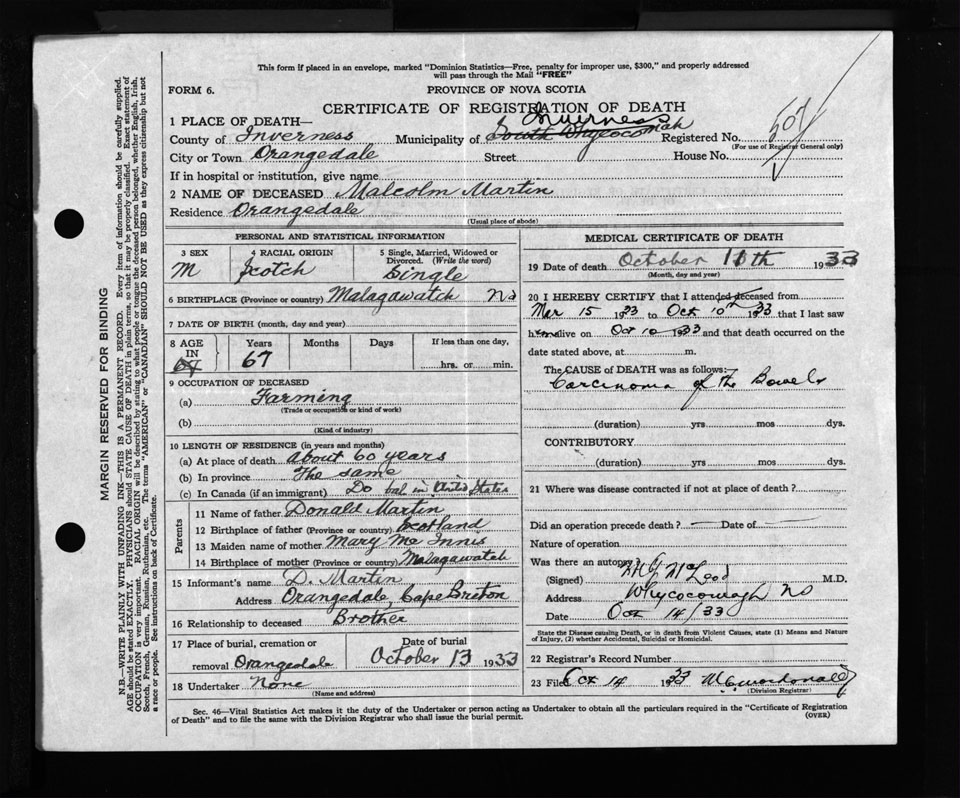 This form if placed in an envelope, marked "Dominion Statistics—Free, penalty for improper use, $300," and properly addressed
will pass through the Mail "FREE"
FORM 6.
PROVINCE OF NOVA SCOTIA
CERTIFICATE OF REGISTRATION OF DEATH
1 PLACE OF DEATH—
Inverness
County of Inverness Municipality of South Whycocomah Registered No. 501
(For use of Registrar General only)
City or Town Orangedale Street House No.
If in hospital or institution, give name
2 NAME OF DECEASED Malcolm Martin
Residence Orangedale
(Usual place of abode)
PERSONAL AND STATISTICAL INFORMATION
3 SEX 4 RACIAL ORIGIN 5 Single, Married, Widowed or
Divorced. (Write the word)
M Scotch Single
6 BIRTHPLACE (Province or country) Malagawatch NS
7 DATE OF BIRTH (month, day and year)
8 AGE IN Years Months Days If less than one day,
67 hrs. or min.
9 OCCUPATION OF DECEASED
(a) Farming
(Trade or occupation or kind of work)
(b)
(Kind of industry)
10 LENGTH OF RESIDENCE (in years and months)
(a) At place of death about 60 years
(b) In province The same
(c) In Canada (if an immigrant) Do but in United States
Parents
11 Name of father Donald Martin
12 Birthplace of father (Province or country) Scotland
13 Maiden name of mother Mary Mc Innis
14 Birthplace of mother (Province or country) Malagawatch
15 Informant's name D. Martin
Address Orangedale, Cape Breton
16 Relationship to deceased Brother
17 Place of burial, cremation or Date of burial
removal Orangedale October 13 1933
18 Undertaker None
(Name and address)
MEDICAL CERTIFICATE OF DEATH
19 Date of death October 11th 1933
(Month, day and year)
20 I HEREBY CERTIFY that I attended deceased from
Mar 15 1933 to Oct 10th 1933 that I last saw
him alive on Oct 10 1933 and that death occurred on the
date stated above, at m.
The CAUSE OF DEATH was as follows:
Carcinoma of the Bowels
(duration) yrs mos dys.
CONTRIBUTORY
(duration) yrs mos dys.
21 Where was disease contracted if not at place of death?
Did an operation precede death? — Date of —
Nature of operation
Was there an autopsy?
(Signed) McLeod M.D.
Address Whycocomagh NS
Date Oct 14/33
State the Disease causing Death, or in death from Violent Causes, state (1) Means and Nature
of Injury, (2) whether Accidental, Suicidal or Homicidal.
22 Registrar's Record Number
23 Filed Oct 14 1933
(Division Registrar)
Sec. 46—Vital Statistics Act makes it the duty of the Undertaker or person acting as Undertaker to obtain all the particulars required in the "Certificate of Registration
of Death" and to file the same with the Division Registrar who shall issue the burial permit. (OVER)
MARGIN RESERVED FOR BINDING
N.B.—WRITE PLAINLY WITH UNFADING INK—THIS IS A PERMANENT RECORD. Every item of information should be carefully supplied.
AGE should be stated EXACTLY. PHYSICIANS should STATE CAUSE OF DEATH in plain terms, so that it may be properly classified. Exact statement of
OCCUPATION is very important. RACIAL ORIGIN will be described by stating to what people or tongue the deceased person belonged, whether English, Irish,
Scotch, French, German, Russian, Ruthenian, etc. The terms "AMERICAN" or "CANADIAN" SHOULD NOT BE USED as they express citizenship but not
a race or people. See instructions on back of Certificate.